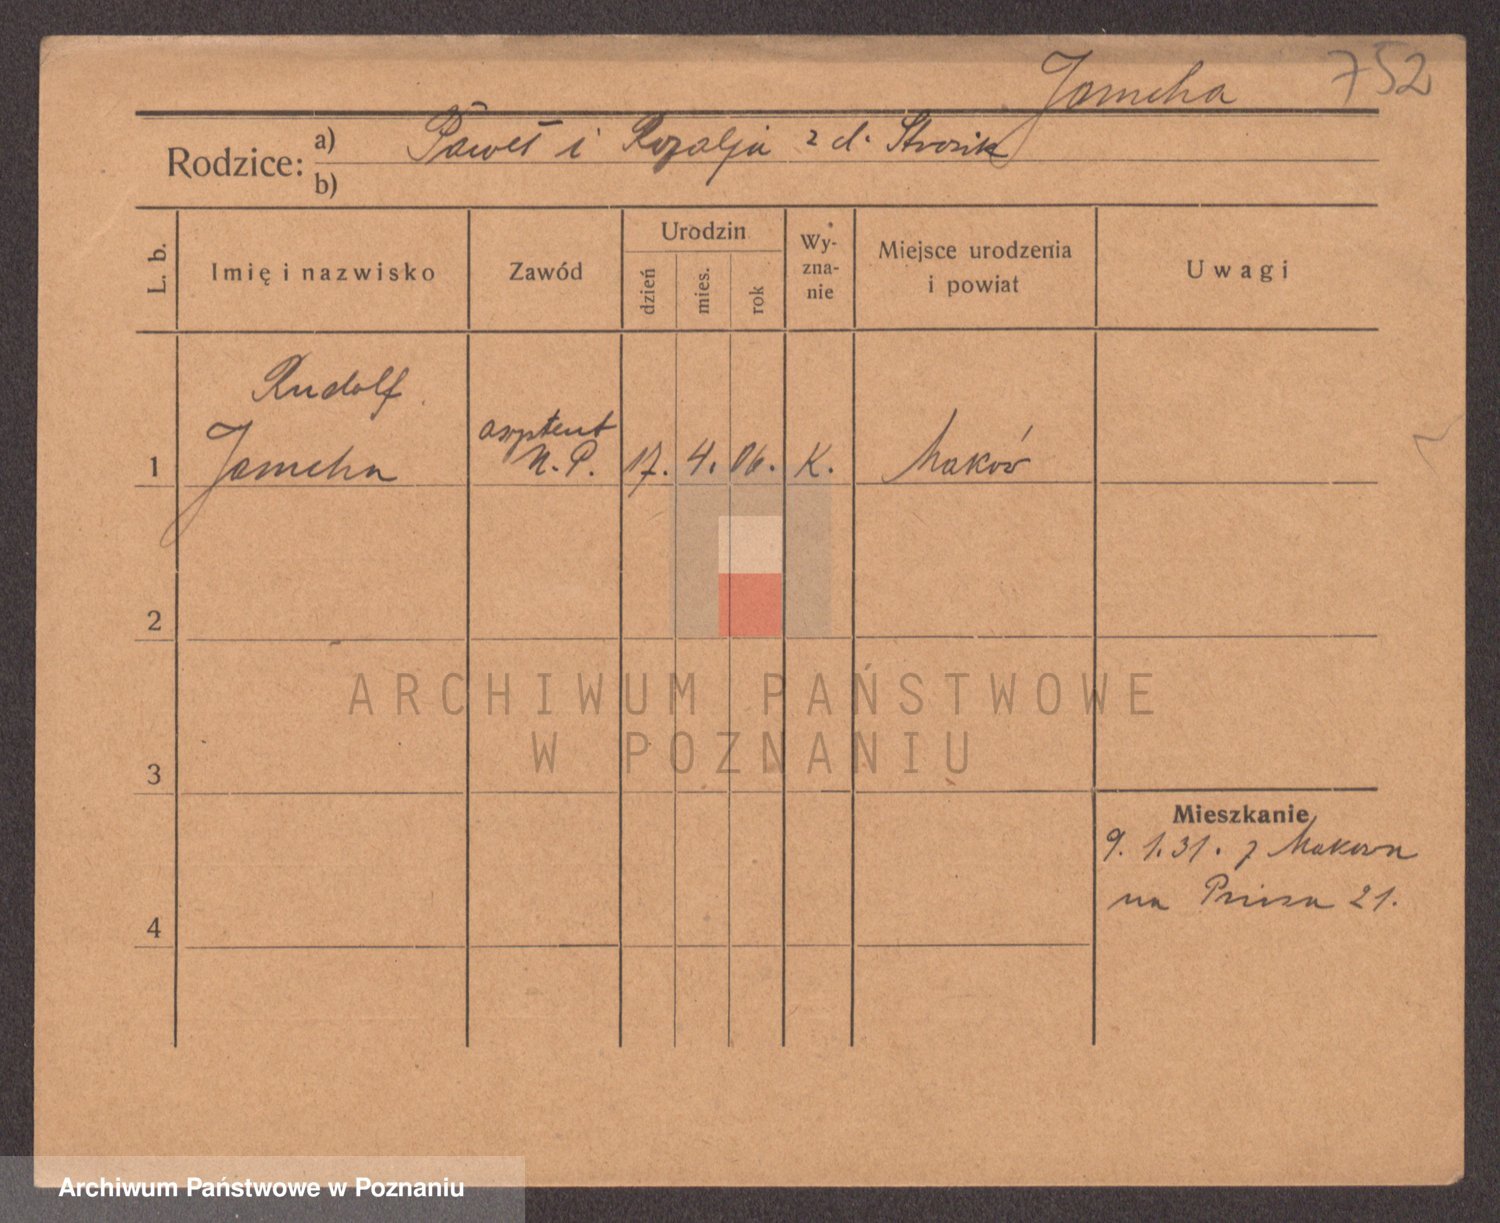 Jamcha 752
Rodzice: a) Paweł i Rozalja z d. Strozik
b)
L. b. Imię i nazwisko Zawód Urodzin dzień mies. rok Wy-zna-nie Miejsce urodzenia i powiat Uwagi
Rudolf
1 Jamcha asystent N. P. 17. 4. 06. K. Maków
2
ARCHIWUM PAŃSTWOWE
W POZNANIU
3
Mieszkanie
9. 1. 31. z Makowa
na 21.
4
Archiwum Państwowe w Poznaniu